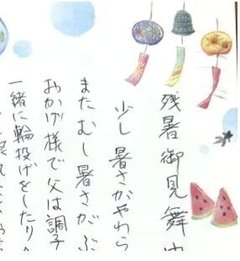 残暑御見舞
少し暑さがやわら
またむし暑さがぶ
おかげ様で父は調子
一緒に輪投げをしたり